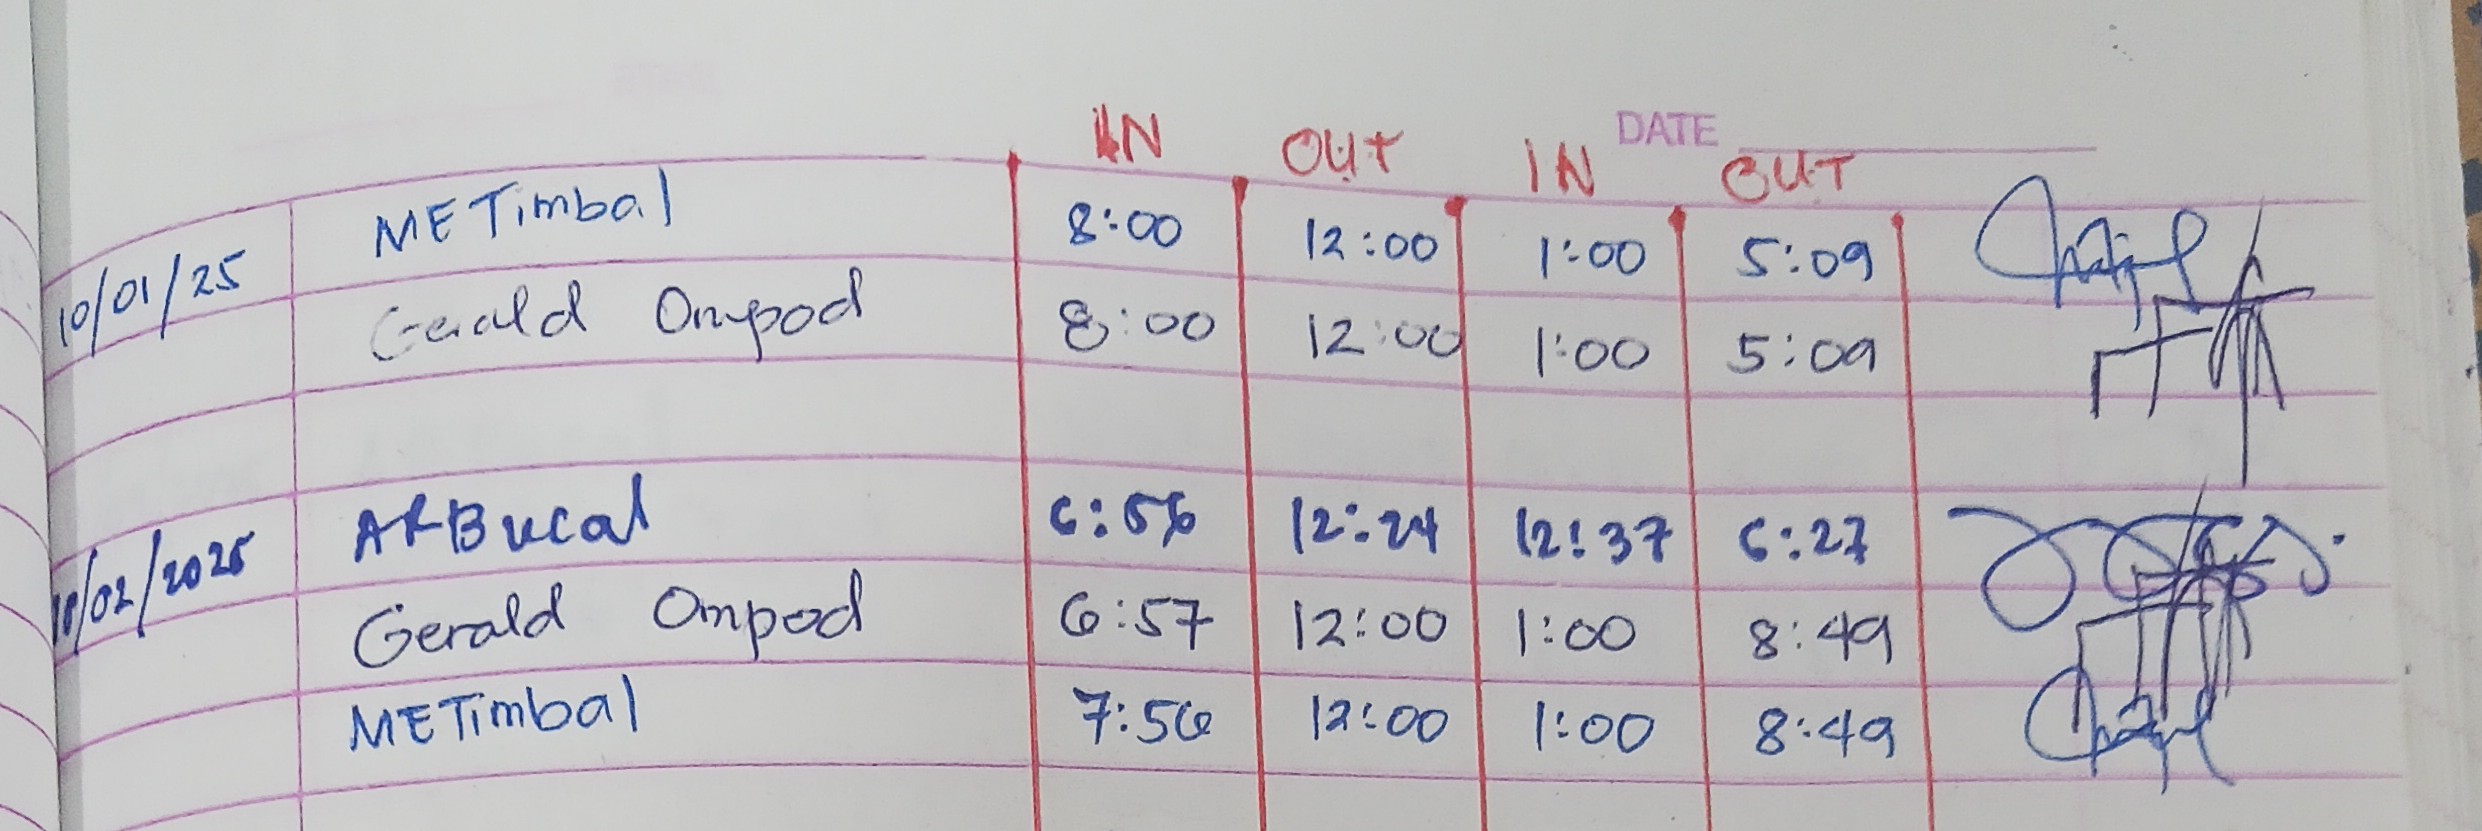 DATE
IN OUT IN OUT
10/01/25 METimbal 8:00 12:00 1:00 5:09
Gerald Ompod 8:00 12:00 1:00 5:09
10/02/2025 ARBucal 6:56 12:24 12:37 6:27
Gerald Ompod 6:57 12:00 1:00 8:49
METimbal 7:56 12:00 1:00 8:49